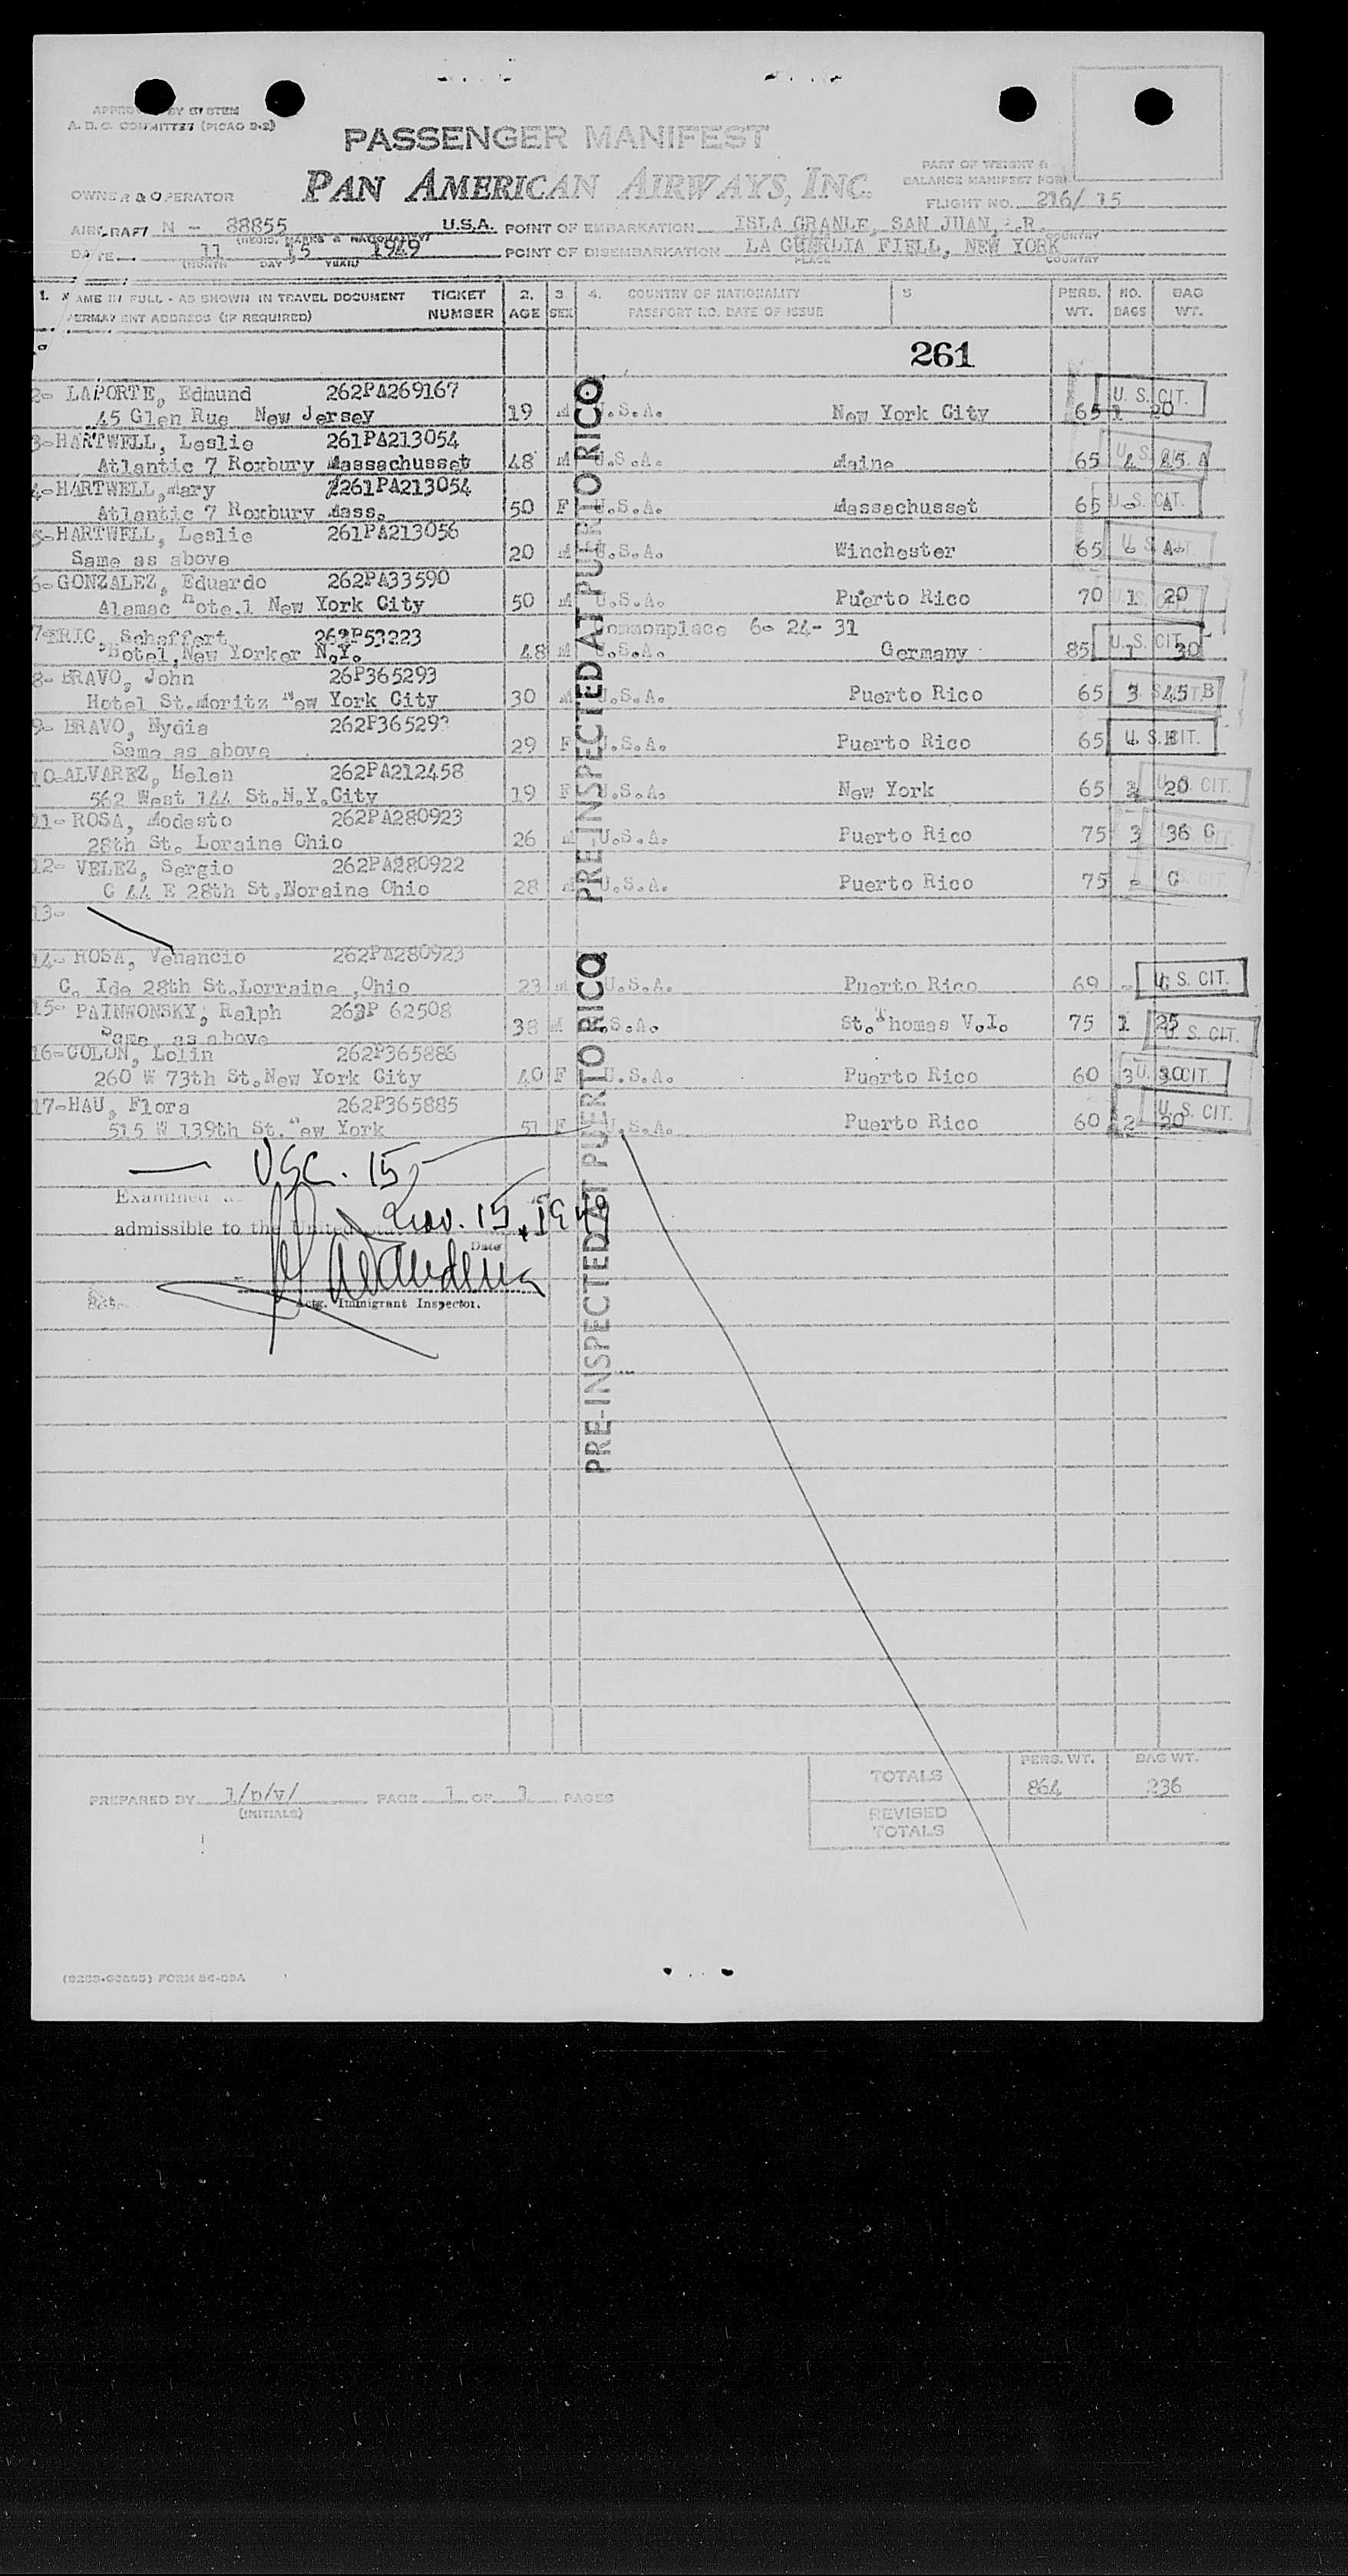 APPROVED BY SYSTEM
A. D. C. COMMITTEE (PICAO 9-2)
PASSENGER MANIFEST
PAN AMERICAN AIRWAYS, INC.
PART OF WEIGHT &
BALANCE MANIFEST FORM
OWNER & OPERATOR
FLIGHT NO. 216/ 15
AIRCRAFT N - 88855 U.S.A. POINT OF EMBARKATION ISLA GRANLE, SAN JUAN, P.R.
(REGIS. MARKS & NATIONALITY) COUNTRY
DATE 11 15 1949 POINT OF DISEMBARKATION LA GUARLIA FIELL, NEW YORK
(MONTH DAY YEAR) PLACE COUNTRY
1. NAME IN FULL - AS SHOWN IN TRAVEL DOCUMENT TICKET 2. 3 4. COUNTRY OF NATIONALITY 5 PERS. NO. BAG
PERMANENT ADDRESS (IF REQUIRED) NUMBER AGE SEX PASSPORT NO. DATE OF ISSUE WT. BAGS WT.
261
2- LAPORTE, Edmund 262PA269167 U. S. CIT.
45 Glen Rue New Jersey 19 M U.S.A. New York City 65 1 20
3-HARTWELL, Leslie 261PA213054
Atlantic 7 Roxbury Massachusset 48 M U.S.A. Maine 65 4 45 A
4-HARTWELL,Mary 261PA213054
Atlantic 7 Roxbury Mass. 50 F U.S.A. Massachusset 65 - A U. S. CIT.
5-HARTWELL, Leslie 261PA213056
Same as above 20 M U.S.A. Winchester 65 - A
6-GONZALEZ, Eduardo 262PA33590
Alamac Hote.l New York City 50 M U.S.A. Puerto Rico 70 1 20
Commonplace 6- 24- 31
7-ERIC, Schaffert 262P53223
Hotel,New Yorker N.Y. 48 M U.S.A. Germany 85 1 30 U. S. CIT.
8- BRAVO, John 26P365293
Hotel St.Moritz New York City 30 M U.S.A. Puerto Rico 65 3 45 B
9- BRAVO, Nydia 262P365292
Same as above 29 F U.S.A. Puerto Rico 65 U. S. CIT.
10-ALVAREZ, Helen 262PA212458
562 West 144 St.N.Y.City 19 F U.S.A. New York 65 2 20 U. S. CIT.
11- ROSA, Modesto 262PA280923
28th St. Loraine Ohio 26 M U.S.A. Puerto Rico 75 3 36 C
12- VELEZ, Sergio 262PA280922
C 44 E 28th St.Noraine Ohio 28 M U.S.A. Puerto Rico 75 - C
13-
14- ROSA, Venancio 262PA280923
C. Ide 28th St.Lorraine ,Ohio 23 M U.S.A. Puerto Rico 69 - C U. S. CIT.
15- PAINWONSKY, Ralph 262P 62508
Same as above 38 M U.S.A. St.Thomas V.I. 75 1 25 U. S. CIT.
16-COLON, Lolin 262P365886
260 W 73th St.New York City 40 F U.S.A. Puerto Rico 60 3 30 U. S. CIT.
17-HAU, Flora 262P365885 U. S. CIT.
515 W 139th St. New York 51 F U.S.A. Puerto Rico 60 2 20
PRE-INSPECTED AT PUERTO RICO
PRE-INSPECTED AT PUERTO RICO
USC. 15
Examined
admissible to the United Nov. 15, 1949
Date
Actg. Immigrant Inspector.
TOTALS PERS. WT. 864 BAG WT. 236
PREPARED BY 1/p/v/ PAGE 1 OF 1 PAGES
(INITIALS)
REVISED
TOTALS